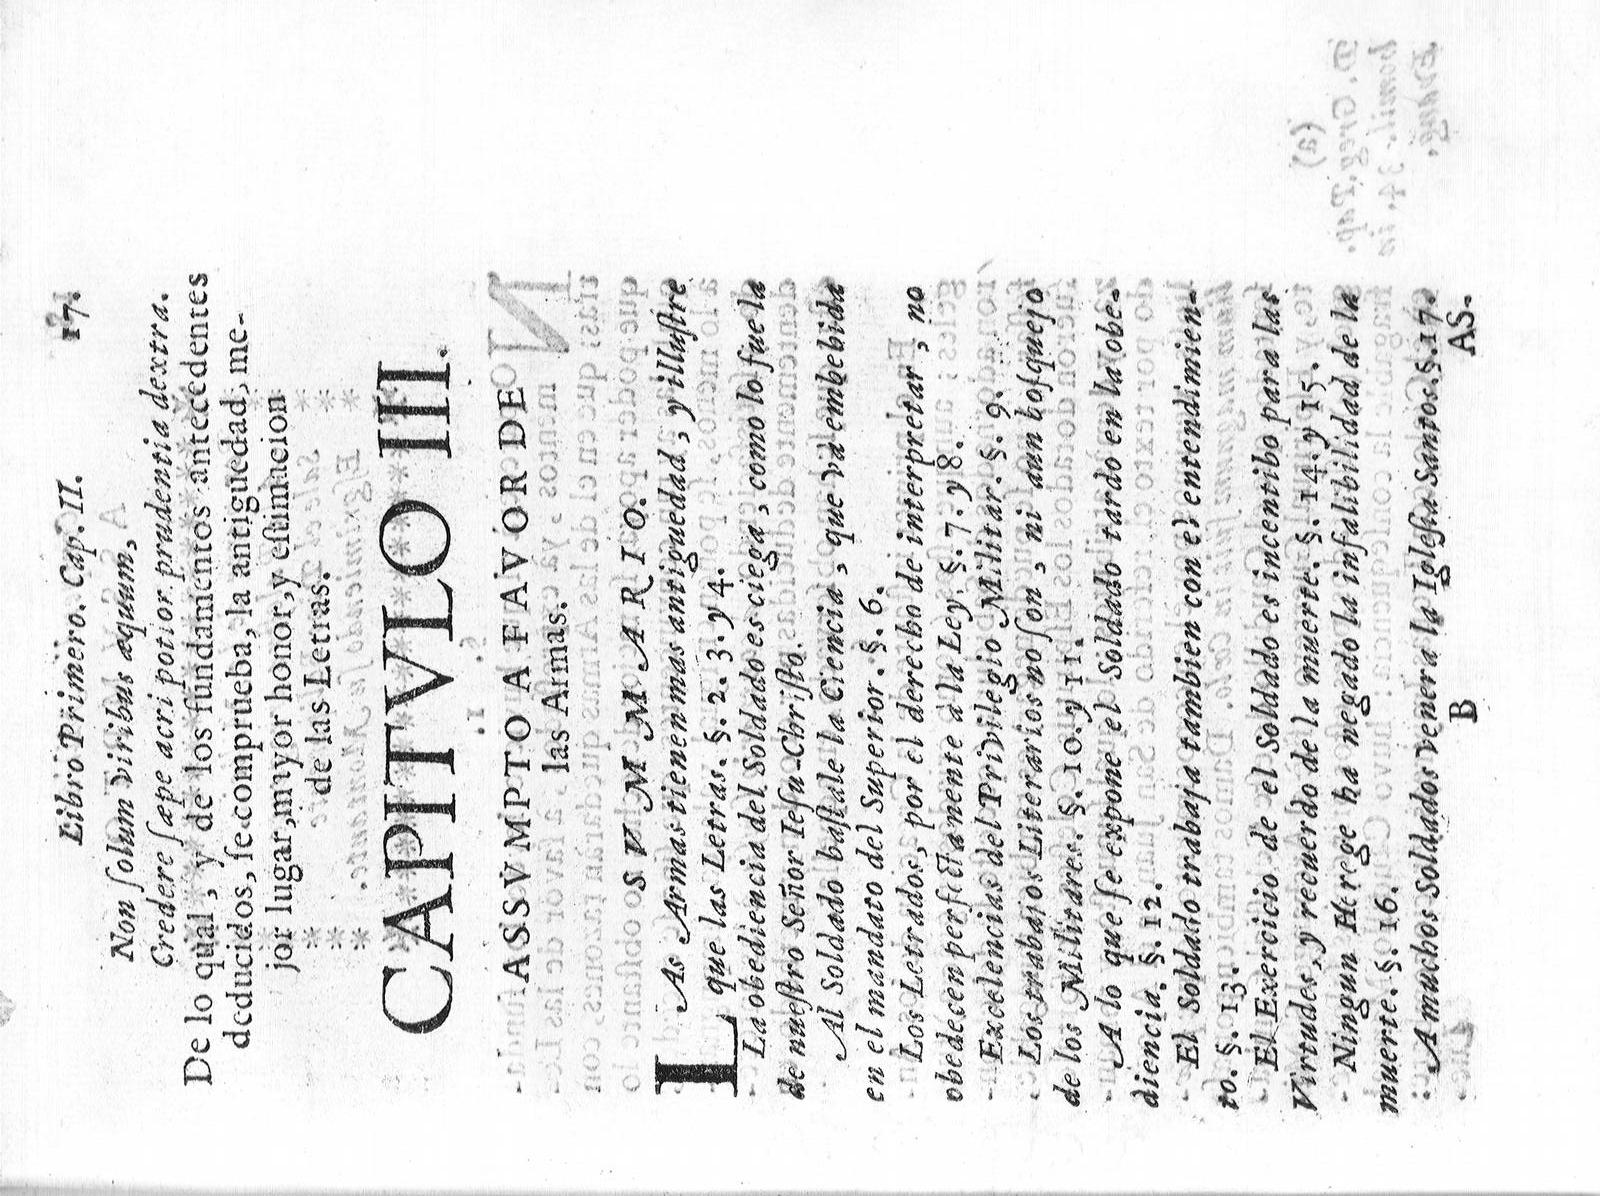 Libro Primero. Cap. II. 17.
Non ſolum viribus æquum,
Credere ſæpe acri potior prudentia dextra.
De lo qual, y de los fundamentos antecedentes
deducidos, ſe comprueba, la antiguedad, me-
jor lugar, mayor honor, y eſtimacion
de las Letras.
CAPITVLO III.
ASSVMPTO A FAVOR DE
las Armas.
SVMMARIO.
LAs Armas tienen mas antiguedad, y illuſtre
que las Letras. §. 2. 3. y 4.
La obediencia del Soldado es ciega, como lo fue la
de nueſtro Señor Ieſu-Chriſto.
Al Soldado baſtale la Ciencia, que và embebida
en el mandato del Superior. §. 6.
Los Letrados, por el derecho de interpretar, no
obedecen perfectamente à la Ley. §. 7. y 8.
Excelencias del Privilegio Militar. §. 9.
Los trabajos Literarios no ſon, ni aun boſquejo
de los Militares. §. 10. y 11.
A lo que ſe expone el Soldado tardo en la obe-
diencia. §. 12.
El Soldado trabaja tambien con el entendimien-
to. §. 13.
El Exercicio de el Soldado es incentibo para las
Virtudes, y recuerdo de la muerte. §. 14. y 15.
Ningun Herege ha negado la infalibilidad de la
muerte. §. 16.
A muchos Soldados venera la Igleſia Santos. §. 17.
B AS.